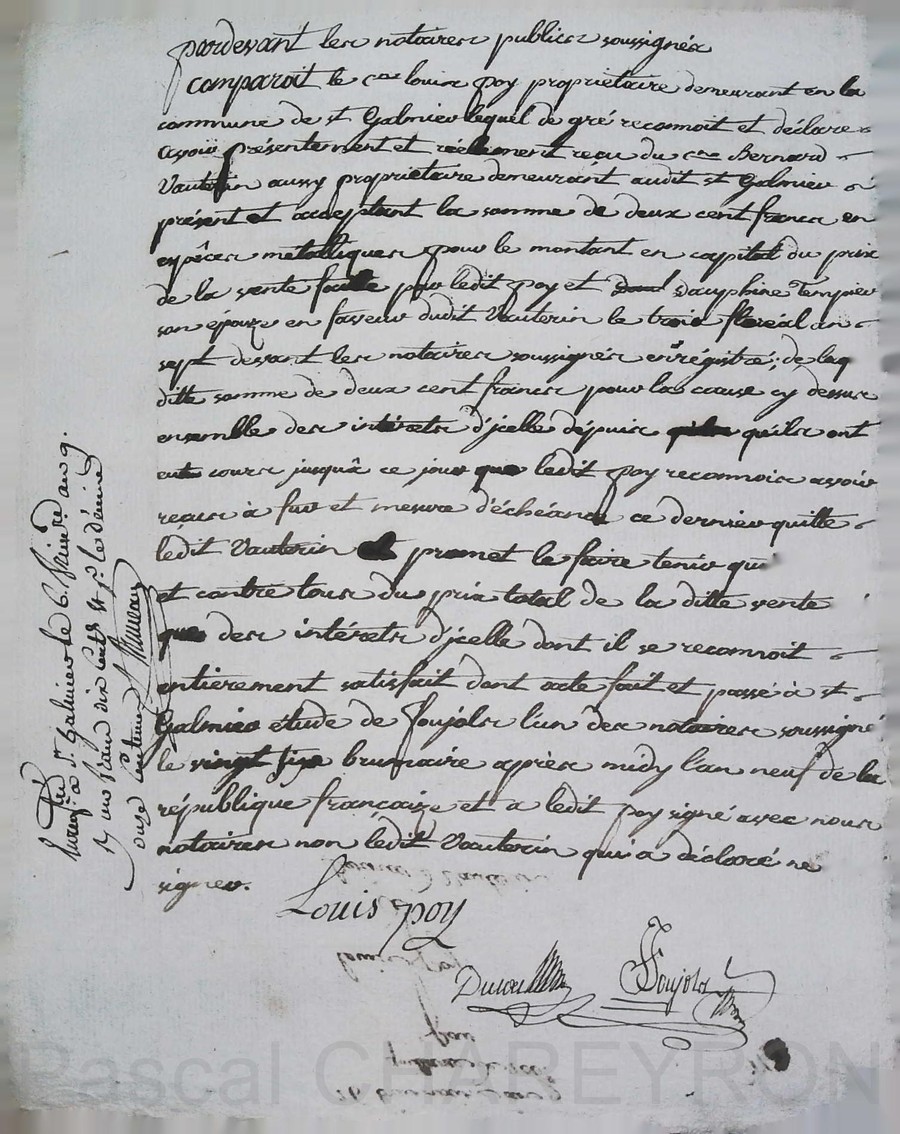 pardevant les notaires publics soussignés
comparoit le cen louis poy propriétaire demeurant en la
commune de st Galmier lequel de gré reconnoit et déclare
avoir présentement et réellement reçu du cen Bernard
Vauterin aussy propriétaire demeurant audit st Galmier
présent et acceptant la somme de deux cent francs en
espêces métalliques pour le montant en capital du prix
de la vente faitte par ledit poy et Dauphine Tempier
son épouze en fasveur dudit Vauterin le trois floréal an
sept devant les notaires soussignés enrégistré; de laq
ditte somme de deux cent francs pour la cause cy dessus
ensemble des intérets d'jcelle dépuis quils ont
cours jusquâ ce jour que ledit poy reconnois avoir
reçus à fur et mesure d'échéance ce dernier quitte
ledit Vauterin et promet le faire tenir qui
et contre tous du prix total de la ditte vente
que des intérets d'jcelle dont il se reconnoit
entierement satisfait dont acte fait et passé à st
Galmier étude de Foujols l'un des notaires soussigné
le vingt six brumaire après midy l'an neuf de la
république françaize et a ledit poy signé avec nous
notaires non ledit Vauterin qui a déclaré ne
signer.
Louis poy
Foujols
à St Galmier le 6. frimre an 9.
un franc dix cents st pr. le dixme
onze centimes
Pascal CHAREYRON